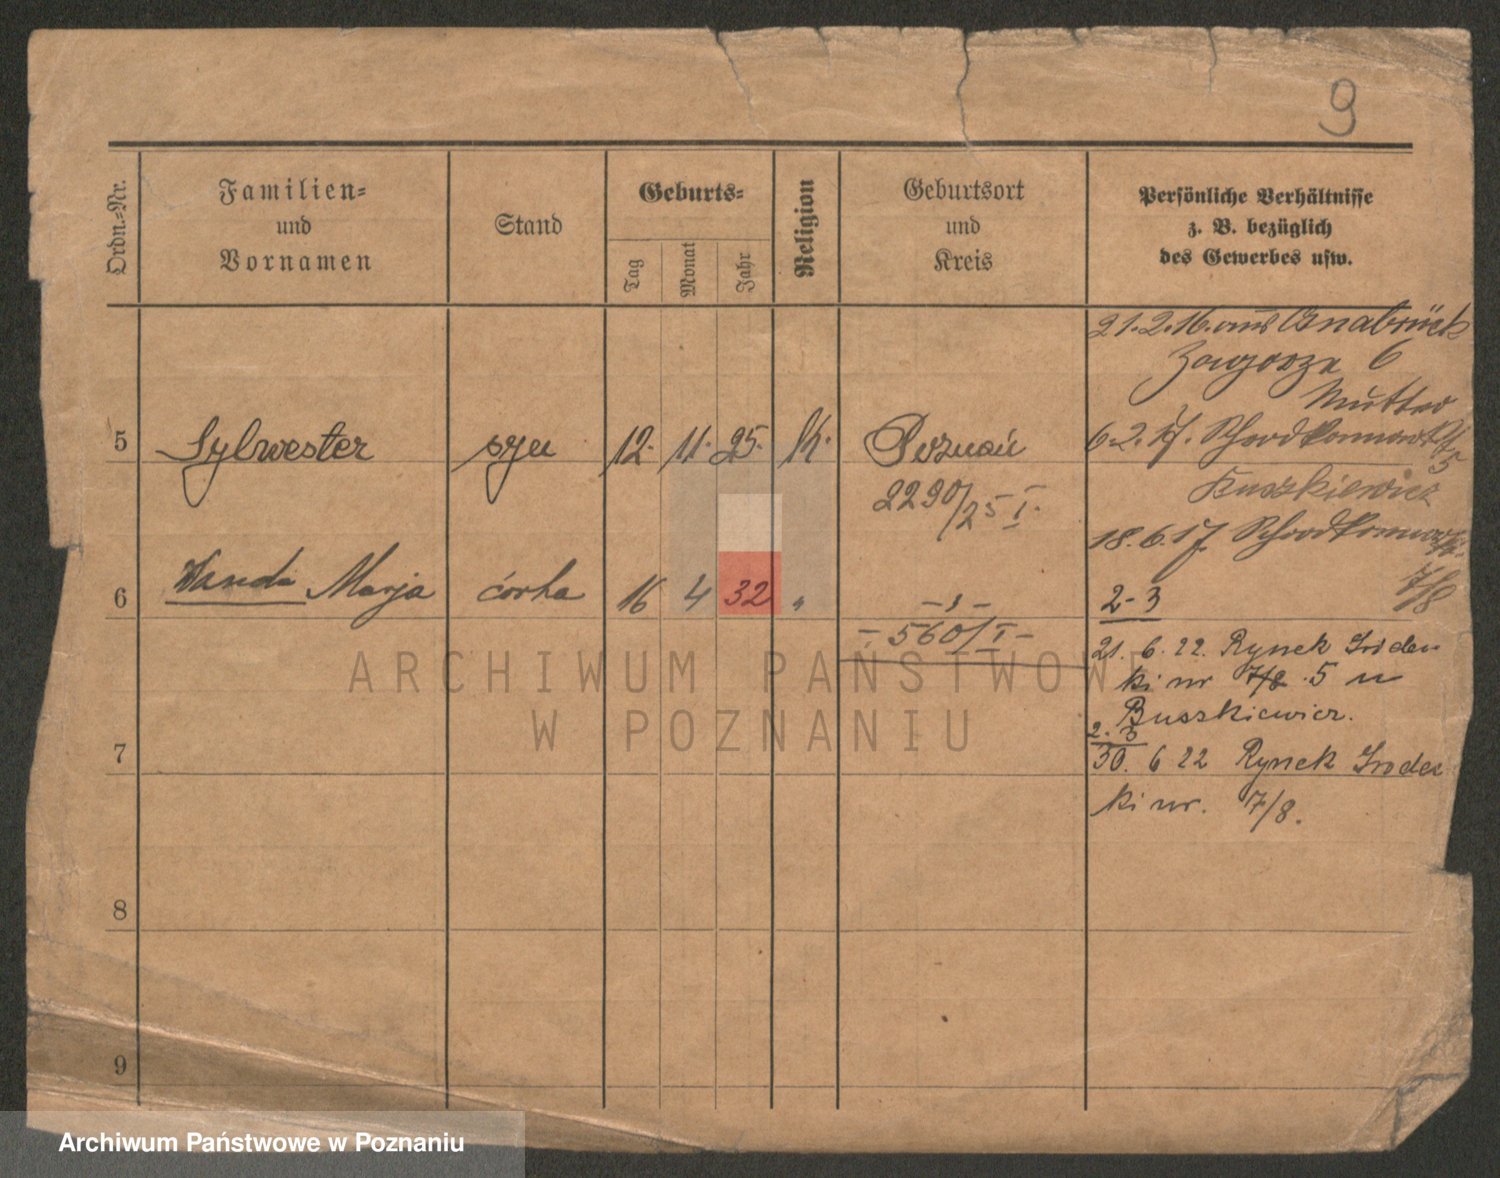 9
Ordn.-Nr.
Familien-
und
Vornamen
Stand
Geburts-
Tag
Monat
Jahr
Religion
Geburtsort
und
Kreis
Persönliche Verhältnisse
z. B. bezüglich
des Gewerbes usw.
21.2.16. aus Osnabrück
Zagorze 6
Mutter
5 Sylwester syn 12. 11. 25. K. Poznań
6.2.17.
5
2290/25 I.
18.6.17
7/8
6 Wanda Marja córka 16 4 32 „ – „ –
2-3
– 560/I –
21. 6. 22. Rynek Śródec-
ki nr 7/8 . 5 u
Buszkiewicz.
2. 3
7
30. 6 22 Rynek Śródec
ki nr. 7/8.
8
9
ARCHIWUM PAŃSTWOWE
W POZNANIU
Archiwum Państwowe w Poznaniu